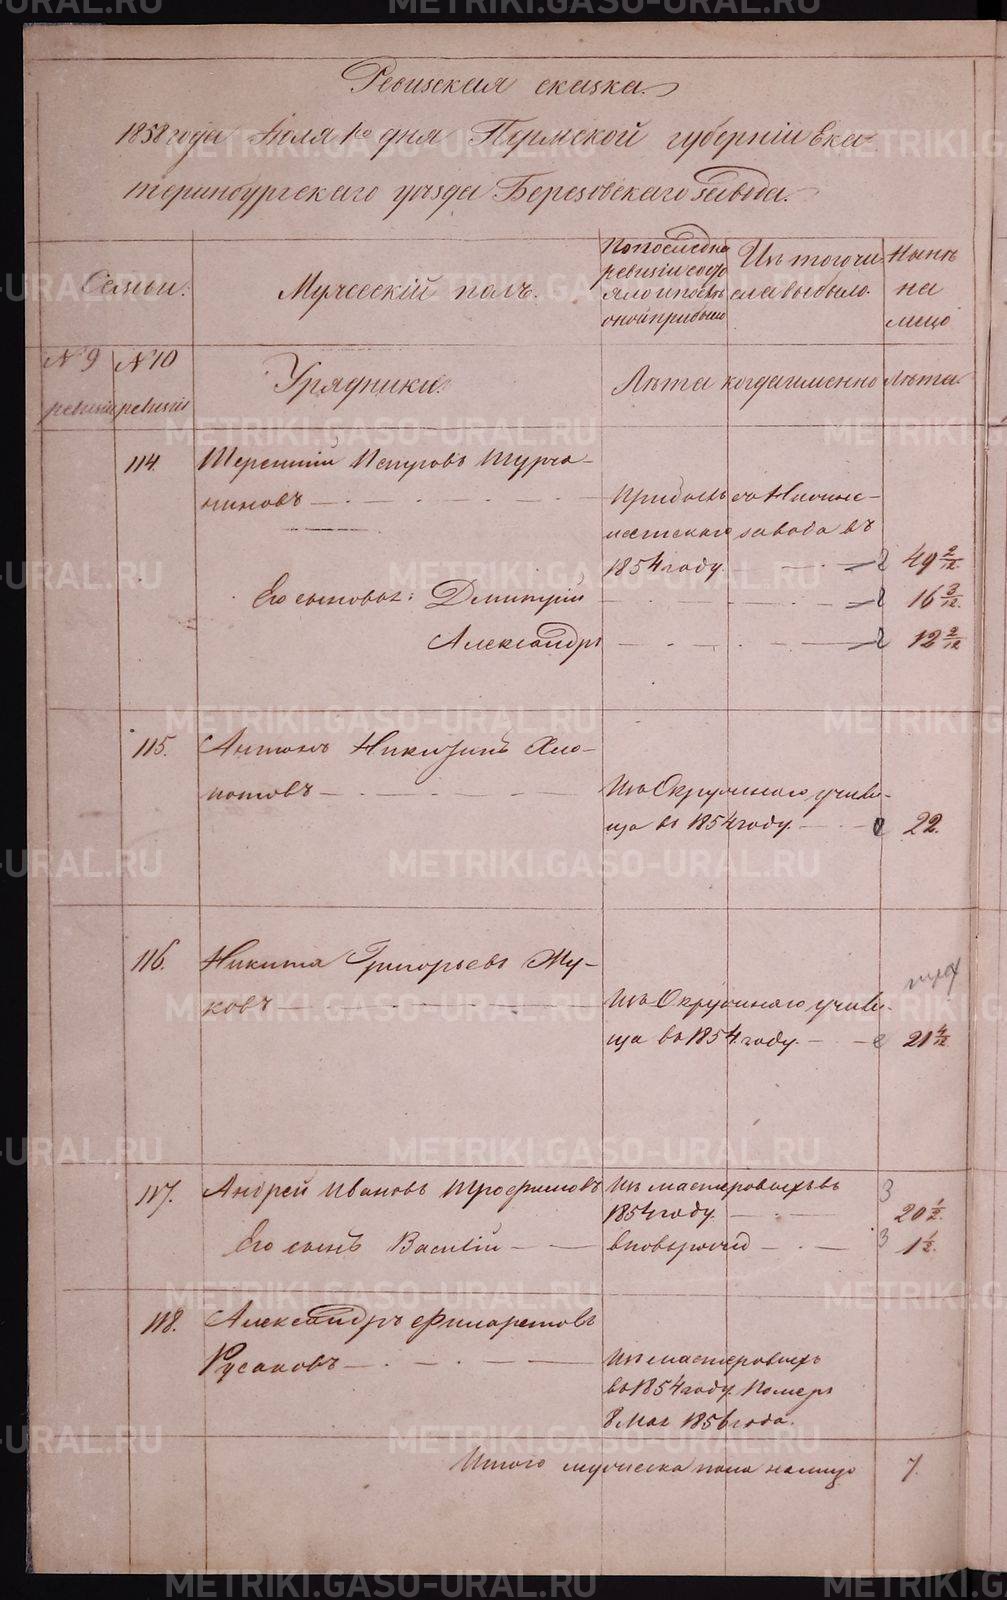 Ревизская сказка
1858 года Июля 1го дня Пермской губерніи Ека-
теринбургскаго уѣзда Березовскаго завода.
Семьи.
Мужескій полъ.
По последней
ревизіи состо
яло и послѣ
оной прибыло
Изъ того чи
сла выбыло.
Нынѣ
на
лицо
№ 9
ревизіи
№ 10
ревизіи
Урядники.
Лѣта
когда именно
Лѣта
114.
Терентій Петровъ Турча-
ниновъ
Прибылъ съ Нижне-
завода въ
1854 году.
49 2/12
Его сыновья: Дмитрій
16 2/12
Александръ
12 2/12
115.
Антонъ Никитинъ Хло-
потовъ
Изъ Окружнаго учили-
ща въ 1854 году.
22.
116.
Никита Григорьевъ Жу-
ковъ
Изъ Окружнаго учили-
ща въ 1854 году.
21 4/12
117.
Андрей Ивановъ Трофимовъ
Изъ мастеровыхъ въ
1854 году.
3
20 1/2.
Его сынъ Василій
вновьрожд
3
1 1/2.
118.
Александръ Филаретовъ
Русаковъ
Изъ мастеровыхъ
въ 1854 году. Померъ
8 Мая 1856 года.
Итого мужеска пола налицо
7.
METRIKI.GASO-URAL.RU